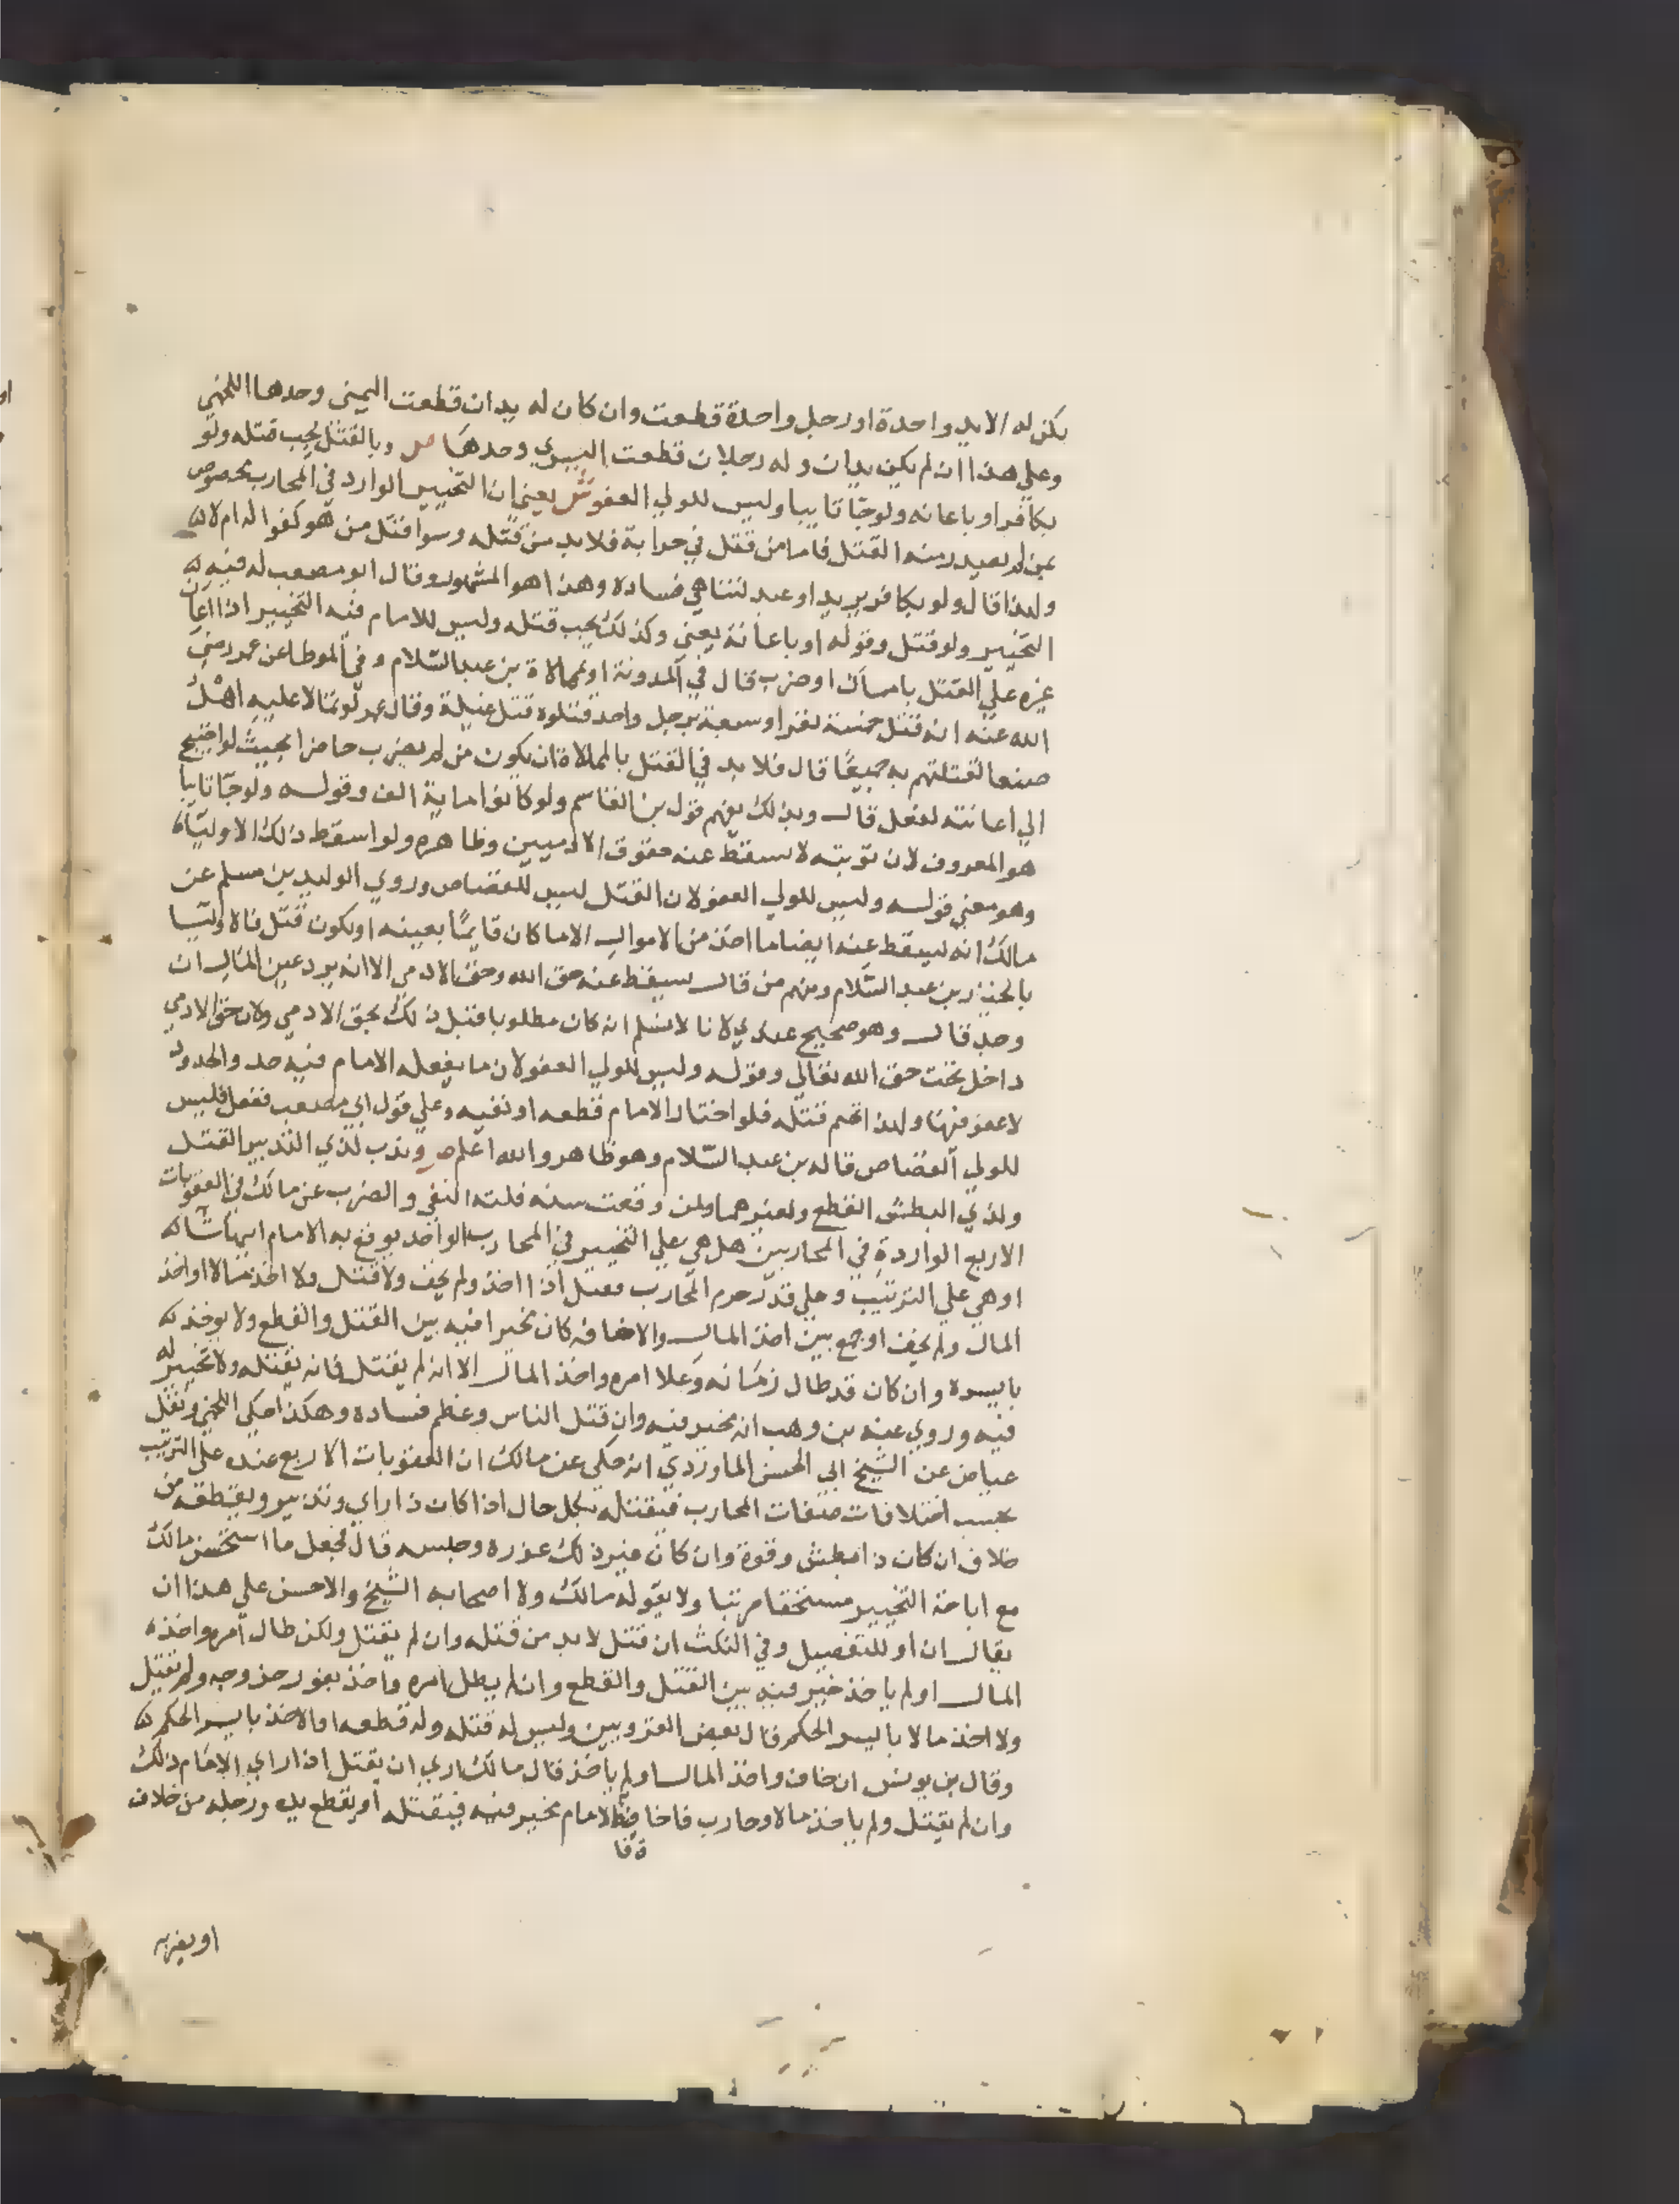 يكن له الا يد واحدة او رجل واحدة قطعت وان كان له يدان قطعت اليمني وحدها اللخمي
وعلي هذا ان لم يكن يدان وله رجلان قطعت اليسري وحدها ص وبالقتل يجب قتله ولو
بكافر او باعانه ولو جآ تايبا وليس للولي العفو ش يعني ان التخيير الوارد في المحارب مخصوص
بمن لم يصدر منه القتل فاما من قتل في حرابة فلا بد من قتله وسوا قتل من هو كفوا له ام لا
ولهذا قال ولو بكافر يريد او عبد لتناهي فساده وهذا هو المشهور وقال ابو مصعب له فيه
التخيير ولو قتل وقوله او باعانة يعني وكذلك يجب قتله وليس للامام فيه التخيير اذا اعان
غيره علي القتل بامساك او ضرب قال في المدونة او ممالاة بن عبد السلام وفي الموطا عن عمر رضي
الله عنه انه قتل خمسة نفر او سبعة برجل واحد قتلوه قتل غيلة وقال عمر لو تمالا عليه اهل
صنعا لقتلتهم به جميعا قال فلا بد في القتل بالممالاة ان يكون من لم يضرب حاضرا بحيث لو احتيج
الي اعانته لفعل قال وبذلك يفهم قول بن القاسم ولو كانوا ماية الف وقوله ولو جآ تايبا
هو المعروف لان توبته لا تسقط عنه حقوق الادميين وظاهره ولو اسقط ذلك الاوليآ
وهو معني قوله وليس للولي العفو لان القتل ليس للقصاص وروي الوليد بن مسلم عن
مالك انه يسقط عنه ايضا ما اخذ من الاموال الا ما كان قايما بعينه او يكون قتل فالاوليا
بالخيار بن عبد السلام ومنهم من قال يسقط عنه حق الله وحق الادمي الا انه يرد عين المال ان
وجد قال وهو صحيح عندي لانا لا نسلم انه كان مطلوبا قبل ذلك بحق الادمي ولان حق الادمي
داخل تحت حق الله تعالي وقوله وليس للولي العفو لان ما يفعله الامام فيه حد والحدود
لا عفو فيها ولهذا تحتم قتله فلو اختار الامام قطعه او نفيه وعلي قول ابي مصعب ففعل فليس
للولي القصاص قاله بن عبد السلام وهو ظاهر والله اعلم ص وندب لذي التدبير القتل
ولذي البطش القطع ولغيرهما ولمن وقعت منه فلتة النفي والضرب عن مالك في العقوبات
الاربع الواردة في المحاربين هل هي علي التخيير في المحارب الواحد يوقع به الامام ايها شآ
او هي علي الترتيب وعلي قدر جرم المحارب فقيل اذا اخذ ولم يخف ولا قتل ولا اخذ مالا او اخذ
المال ولم يخف او جمع بين اخذ المال والاخافه كان مخيرا فيه بين القتل والقطع ولا يوخذ
بايسره وان كان قد طال زمانه وعلا امره واخذ المال الا انه لم يقتل فانه يقتله ولا تخيير له
فيه وروي عنه بن وهب انه مخير فيه وان قتل الناس وعظم فساده وهكذا حكي اللخمي ونقل
عياض عن الشيخ ابي الحسن الماوردي انه حكي عن مالك ان العقوبات الاربع عنده علي الترتيب
بحسب اختلافات صفات المحارب فيقتله بكل حال اذا كان ذا راي وتدبير ويقطعه من
خلاف ان كان ذا بطش وقوة وان كان غير ذلك عزره وحبسه قال فجعل ما استحسن مالك
مع اباحة التخيير مستحقا مرتبا ولا يقوله مالك ولا اصحابه الشيخ والاحسن علي هذا ان
يقال ان او للتفصيل وفي النكت ان قتل لا بد من قتله وان لم يقتل ولكن طال امره واخذه
المال او لم ياخذ خير فيه بين القتل والقطع وان لم يطل امره واخذ بفور خروجه ولم يقتل
ولا اخذ مالا بايسر الحكم قال بعض القرويين وليس له قتله وله قطعه او الاخذ بايسر الحكم
وقال بن يونس ان خاف واخذ المال او لم ياخذ قال مالك اري ان يقتل اذا راي الامام ذلك
وان لم يقتل ولم ياخذ مالا وحارب فاخاف الامام مخير فيه فيقتله او يقطع يده ورجله من خلاف
او يضربه